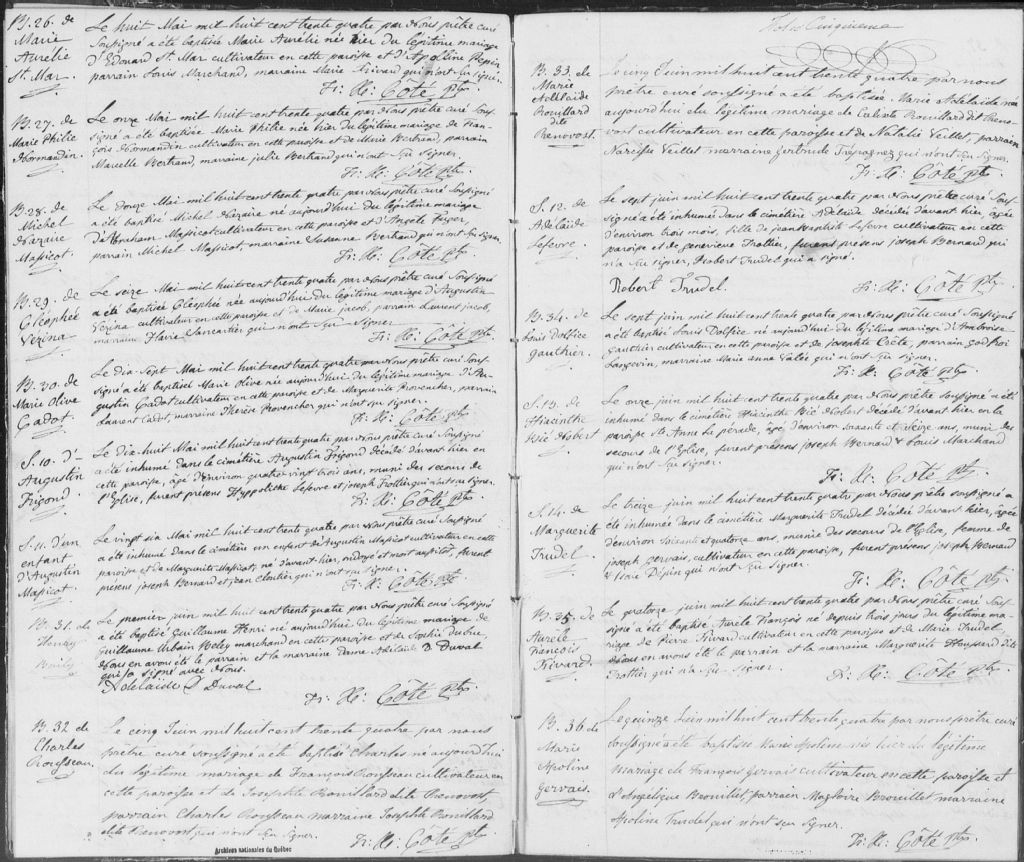 B. 26. de
Marie
Aurélie
St. Mar.
Le huit Mai mil huit cent trente quatre par Nous prêtre curé
Soussigné a été baptisée Marie Aurélie née hier du légitime mariage
d'Edouard St. Mar cultivateur en cette paroisse et d'Apoline Pepin
parrain Louis Marchand, marraine Marie Rivard qui n'ont su signer.
Fr: X: Côté ptre
B. 27. de
Marie Philie
Normandin.
Le onze Mai mil huit cent trente quatre par Nous prêtre curé Sous-
signé a été baptisée Marie Philie née hier du légitime mariage de Fran-
çois Normandin cultivateur en cette paroisse et de Marie Bertrand, parrain
Marcelle Bertrand, marraine julie Bertrand qui n'ont su signer.
Fr: X: Côté ptre
B. 28. de
Michel
Nazaire
Massicot.
Le douze Mai mil huit cent trente quatre par Nous prêtre curé Soussigné
a été baptisé Michel Nazaire né aujourd'hui du légitime mariage
d'Abraham Massicot cultivateur en cette paroisse et d'Angele
parrain Michel Massicot, marraine Susanne Bertrand qui n'ont su signer
Fr: X: Côté ptre
B. 29. de
Cléophée
Vezina
Le seize Mai mil huit cent trente quatre par Nous prêtre curé Soussigné
a été baptisée Cléophée née aujourd'hui du légitime mariage d'Augustin
Vezina cultivateur en cette paroisse et de Marie jacob, parrain Laurent jacob,
marraine qui n'ont su signer
Fr: X: Côté ptre
B. 30. de
Marie Olive
Cadot.
Le dix Sept Mai mil huit cent trente quatre par Nous prêtre curé Sous-
signé a été baptisée Marie Olive née aujourd'hui du légitime mariage d'Au-
gustin Cadot cultivateur en cette paroisse et de Marguerite Provencher, parrain
Laurent Cadot, marraine Therese Provencher qui n'ont su signer.
Fr: X: Côté ptre
S. 10. d'-
Augustin
Frigond.
Le dix-huit Mai mil huit cent trente quatre par Nous prêtre curé Soussigné
a été inhumé dans le cimetière Augustin Frigond décédé d'avant hier en
cette paroisse, âgé d'environ quatre-vingt trois ans, muni des secours de
l'Eglise, furent présens Hyppolithe Lefevre et joseph Trottier qui n'ont su signer.
Fr: X: Côté ptre
S. 11. d'un
enfant
d'Augustin
Massicot.
Le vingt six Mai mil huit cent trente quatre par Nous prêtre curé Soussigné
a été inhumé dans le cimetière un enfant d'Augustin Massicot cultivateur en cette
paroisse et de Marguerite Massicot, né d'avant-hier, ondoyé et mort aussitôt, furent
présens joseph Bernard et jean Cloutier qui n'ont su signer.
Fr: X: Côté ptre
B. 31. de
Henry
Le premier juin mil huit cent trente quatre par Nous prêtre curé Soussigné
a été baptisé Guillaume Henri né aujourd'hui du légitime mariage de
Guillaume Urbain marchand en cette paroisse et de Sophie
Nous en avons été le parrain et la marraine Dame Adélaide D Duval
qui a signé avec Nous.
Adelaide D Duval
Fr: X: Côté ptre
B. 32 de
Charles
Rousseau.
Le cinq Juin mil huit cent trente quatre par nous
prêtre curé soussigné a été baptisé Charles né aujourd'hui
du légitime mariage de François Rousseau cultivateur en
cette paroisse et de Josephte Rouillard dite Prenovost,
parrain Charles Rousseau marraine Josephte Rouillard
dite Prenovost qui n'ont su signer.
Fr: X: Côté ptre
Archives nationales du Québec
Folio Cinquième
B. 33. de
Marie
Adélaide
Rouillard
dit
Prenovost.
Le cinq Juin mil huit cent trente quatre par nous
prêtre curé soussigné a été baptisée Marie Adelaide née
aujourd'hui du légitime mariage de Celeste Rouillard dit Preno-
vost cultivateur en cette paroisse et de Natalie Veillet, parrain
Narcisse Veillet marraine Gertrude qui n'ont su signer.
Fr: X: Côté ptre
S. 12. de
Adelaide
Lefevre.
Le sept juin mil huit cent trente quatre par Nous prêtre curé Sous-
signé a été inhumée dans le cimetière Adelaide décédée d'avant hier, âgée
d'environ trois mois, fille de jean Baptiste Lefevre cultivateur en cette
paroisse et de genevieve Trottier, furent présens joseph Bernard qui
n'a su signer, Robert Trudel qui a signé.
Robert Trudel.
Fr: X: Côté ptre
B. 34. de
Louis Dolfice
Gauthier.
Le sept juin mil huit cent trente quatre par Nous prêtre curé Soussigné
a été baptisé Louis Dolfice né aujourd'hui du légitime mariage d'Ambroise
Gauthier cultivateur en cette paroisse et de josephte Coète, parrain godfroi
Langevin, marraine Marie anne Valée qui n'ont su signer.
Fr: X: Côté ptre
S. 13. de
Hiacinthe
Bié Nobert
Le onze juin mil huit cent trente quatre par Nous prêtre Soussigné a été
inhumé dans le cimetière Hiacinthe Bié Nobert décédé d'avant hier en la
paroisse Ste Anne La pérade, âgé d'environ soixante et seize ans, muni des
secours de l'Eglise, furent présens joseph Bernard & Louis Marchand
qui n'ont su signer.
Fr: X: Côté ptre
S. 14. de
Marguerite
Trudel.
Le treize juin mil huit cent trente quatre par Nous prêtre soussigné a
été inhumée dans le cimetière Marguerite Trudel décédée d'avant hier, âgée
d'environ soixante et quatorze ans, munie des secours de l'Eglise, femme de
joseph gervais, cultivateur en cette paroisse, furent présens joseph Bernard
& qui n'ont su signer.
Fr: X: Côté ptre
B. 35. de
Aurele
François
Rivard.
Le quatorze juin mil huit cent trente quatre par Nous prêtre curé Sous-
signé a été baptisé Aurele François né depuis trois jours du légitime ma-
riage de Pierre Rivard cultivateur en cette paroisse et de Marie Trudel
Nous en avons été le parrain et la marraine Marguerite Houssard dite
Trottier qui n'a su signer.
Fr: X: Côté ptre
B. 36. de
Marie
Apoline
Gervais.
Le quinze Juin mil huit cent trente quatre par nous prêtre curé
soussigné a été baptisée Marie Apoline née hier du légitime
mariage de François Gervais cultivateur en cette paroisse et
d'Angelique Brouillet, parrain Magloire Brouillet marraine
Apoline Trudel qui n'ont su signer.
Fr: X: Côté ptre